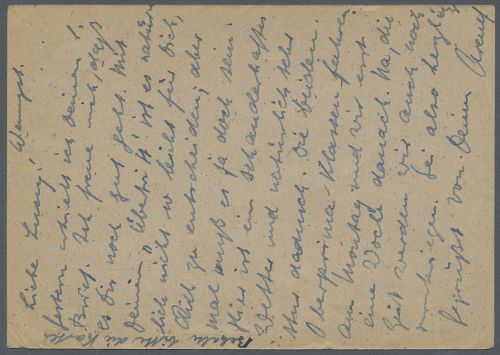 Liebe Lucy,
Gestern erhielt ich Deinen
Brief. Ich freue mich, daß
es Dir noch gut geht. Mit
Deinem „Übertritt" ist es
lich nicht so leicht für Dich,
Dich zu entscheiden, aber
mal muß es ja doch sein
Hier ist ein schauderhaftes
Wetter und natürlich sehr
. Die beiden
Oberprima-Klassen fahren
am Montag und wir erst
eine Woche danach. Na, die
Zeit werden wir auch noch
. Sei also herzl.
gegrüßt von Deiner
Behalte bitte die Karte